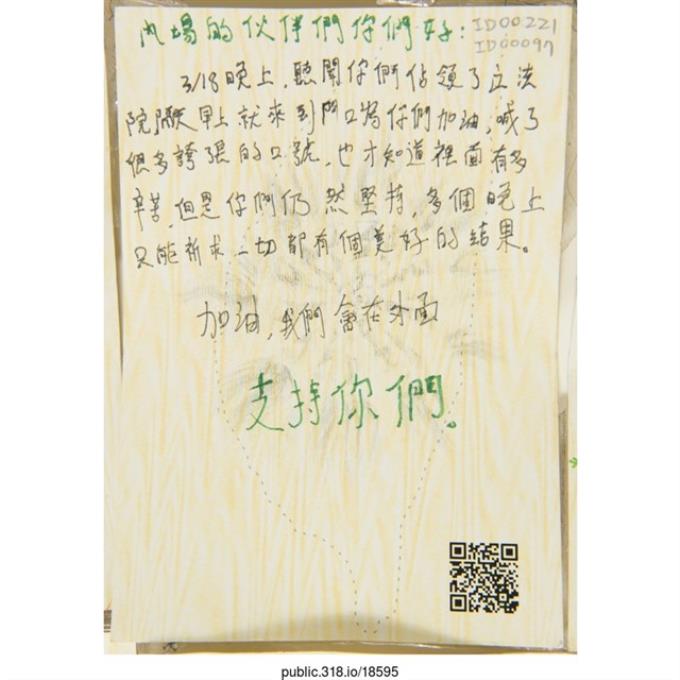 內場的伙伴們你們好：
ID00221
ID00097
3/18晚上，聽聞你們佔領了立法
院隔天早上就來到門口為你們加油，喊了
很多誇張的口號，也才知道裡面有多
辛苦，但是你們仍然堅持，多個晚上
只能祈求一切都有個美好的結果。
加油，我們會在外面
支持你們。
public.318.io/18595